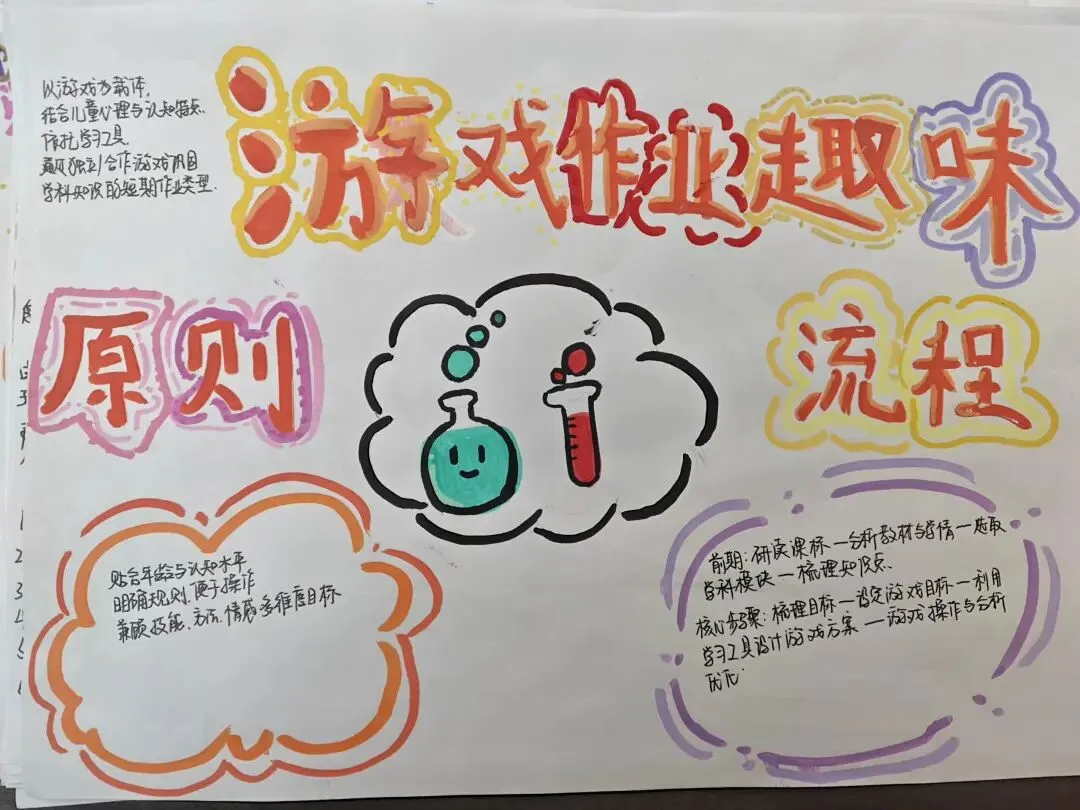 以游戏为载体,
结合儿童心理与认知特点.
依托学习工具.
兼顾独立/合作游戏巩固
学科知识的短期作业类型.
游戏作业趣味
原则
流程
贴合年龄与认知水平
明确规则,便于操作
兼顾技能、方法、情感多维度目标
前期:研读课标—分析教材与学情—选取
学科模块—梳理知识点.
核心步骤:梳理目标—设定游戏目标—利用
学习工具设计游戏方案—游戏操作与分析
优化.
1
2
3
4
5